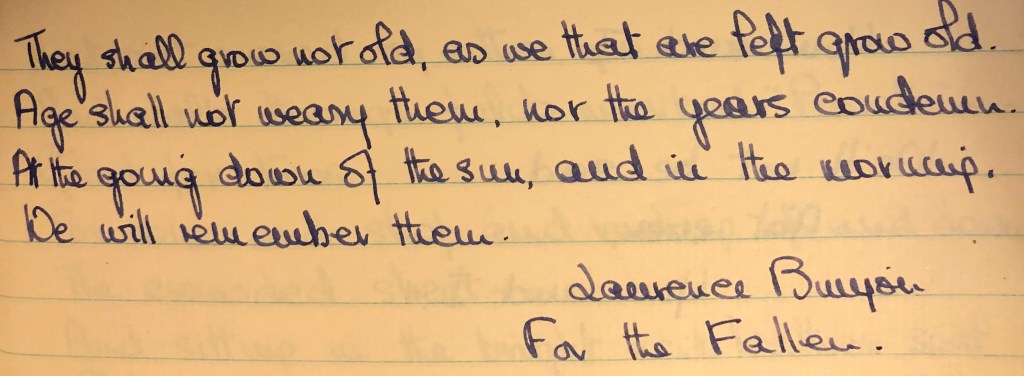 They shall grow not old, as we that are left grow old.
Age shall not weary them, nor the years condemn.
At the going down of the sun, and in the morning.
We will remember them.
Laurence Binyon
For the Fallen.